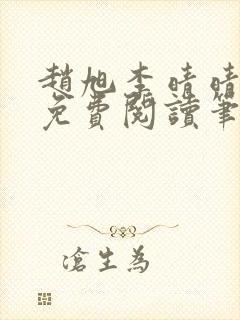 趙旭李晴晴
免費閱讀筆
滄生為